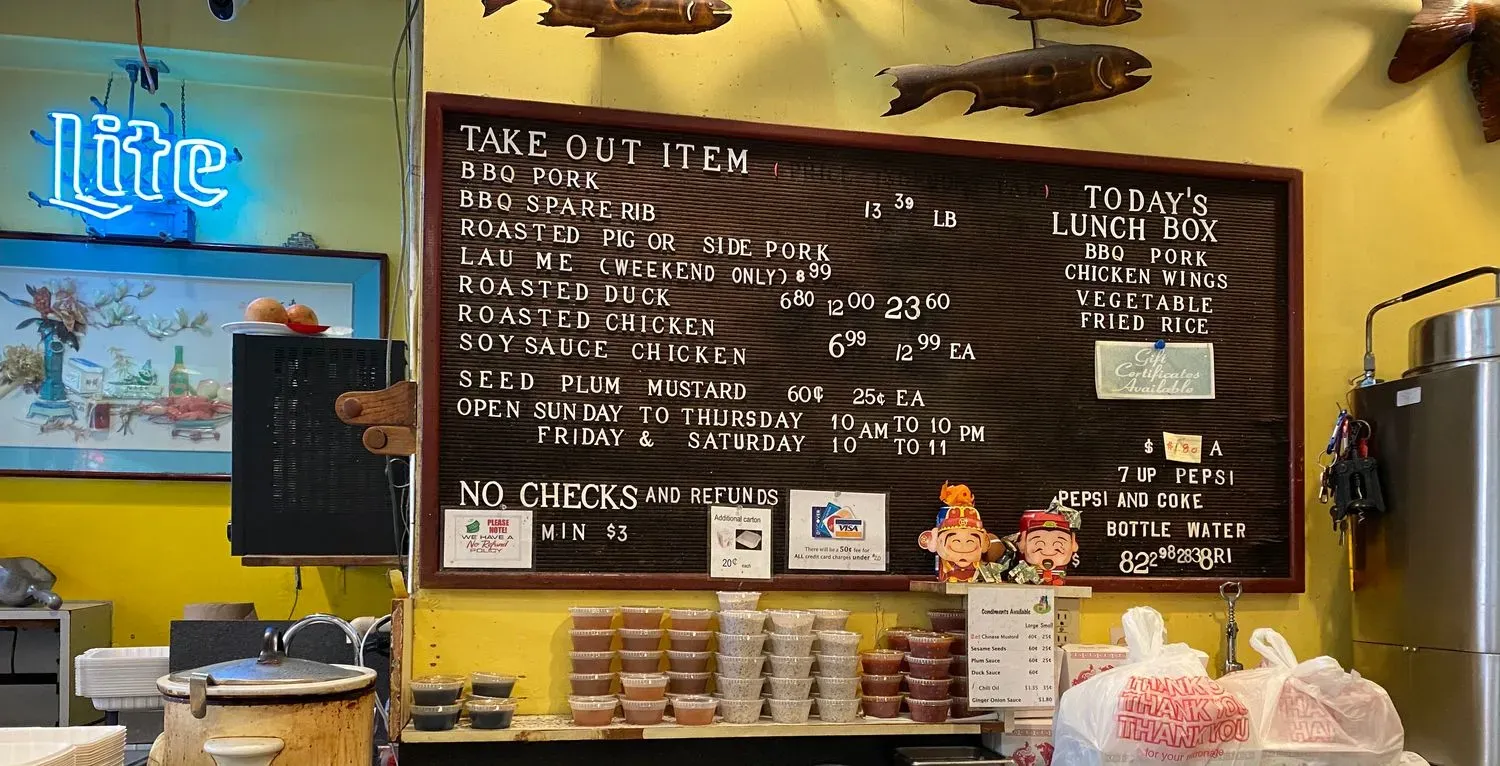 Lite
TAKE OUT ITEM
BBQ PORK
BBQ SPARE RIB 13 39 LB
ROASTED PIG OR SIDE PORK
LAU ME (WEEKEND ONLY) 8 99
ROASTED DUCK 6 80 12 00 23 60
ROASTED CHICKEN
SOY SAUCE CHICKEN 6 99 12 99 EA
SEED PLUM MUSTARD 60¢ 25¢ EA
OPEN SUNDAY TO THURSDAY 10 AM TO 10 PM
FRIDAY & SATURDAY 10 TO 11
NO CHECKS AND REFUNDS
MIN $3
PLEASE
NOTE!
WE HAVE A
No Refund
POLICY
Additional carton
20¢ each
VISA
There will be a 50¢ fee for
ALL credit card charges under
TODAY'S
LUNCH BOX
BBQ PORK
CHICKEN WINGS
VEGETABLE
FRIED RICE
Gift
Certificates
Available
$ $1.80 A
7 UP PEPSI
PEPSI AND COKE
BOTTLE WATER
$ 822982838RI
Condiments Available
Large Small
Hot Chinese Mustard 60¢ 25¢
Sesame Seeds 60¢ 25¢
Plum Sauce 60¢ 25¢
Duck Sauce 60¢
Chili Oil $1.35 35¢
Ginger Onion Sauce $1.80
THANK YOU
THANK YOU
THANK YOU
for your patronage